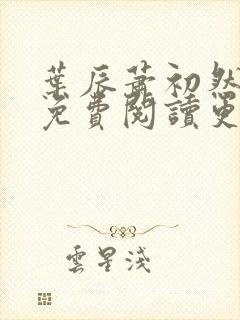 葉辰蕭初然
免費閱讀更
雲星淺